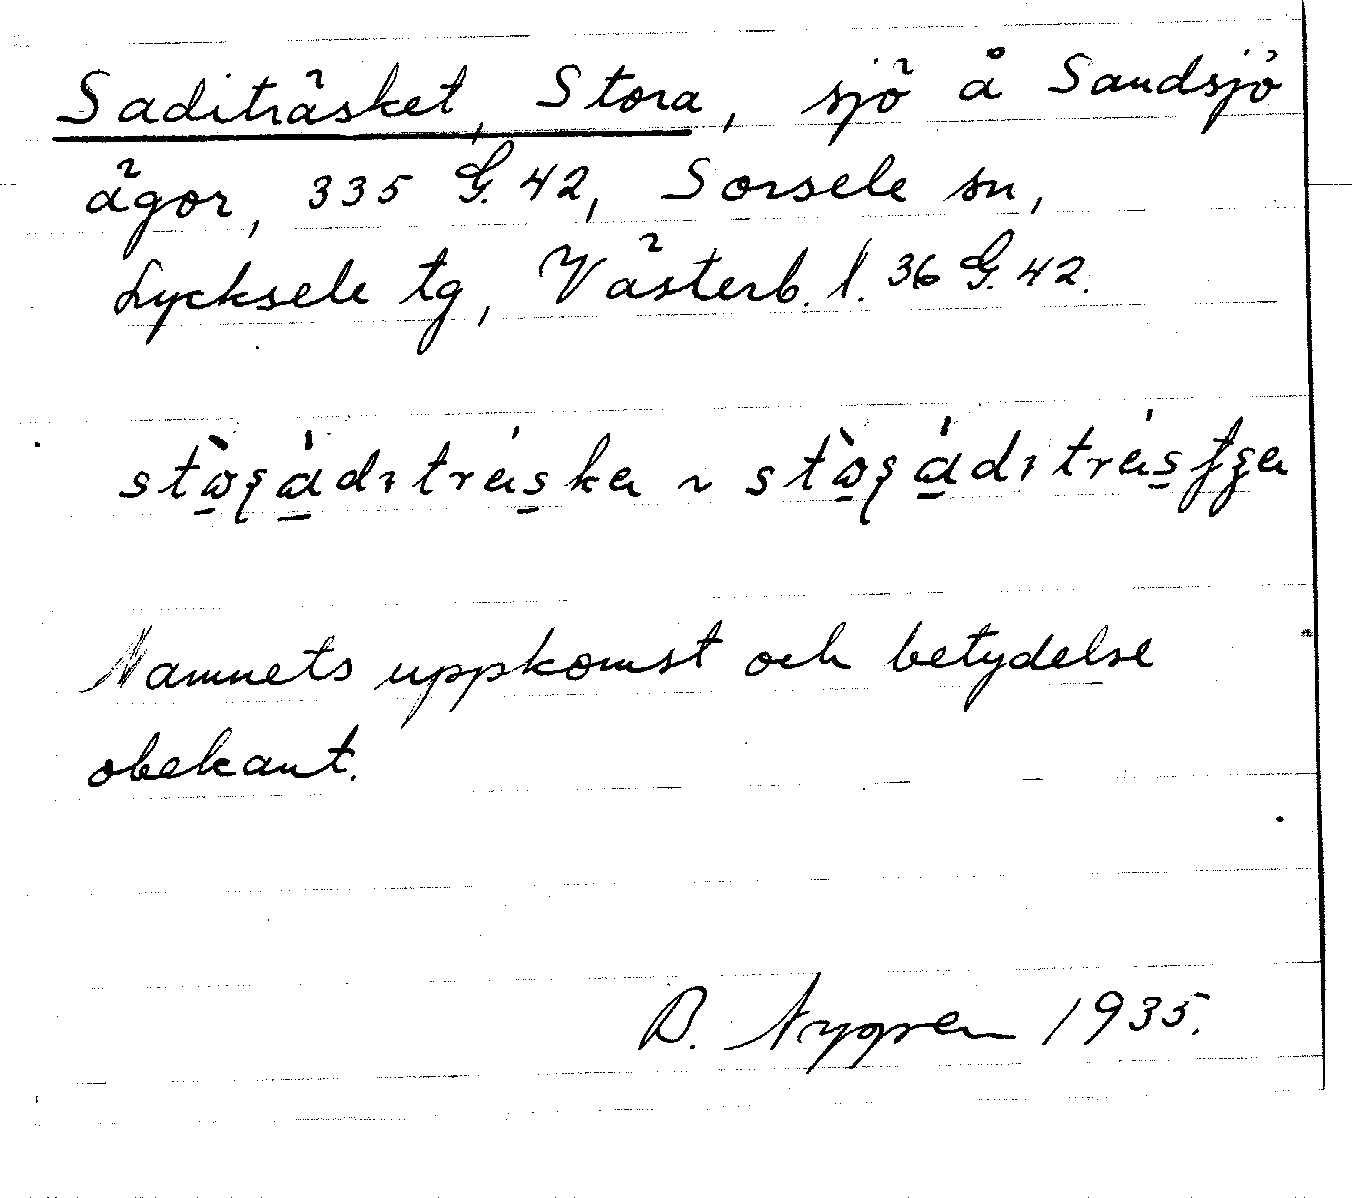 Saditräsket, Stora, sjö å Sandsjö
ägor, 335 G. 42, Sorsele sn,
Lycksele tg, Västerb. l. 36 G. 42.
Namnets uppkomst och betydelse
obekant.
B. Nygren 1935.